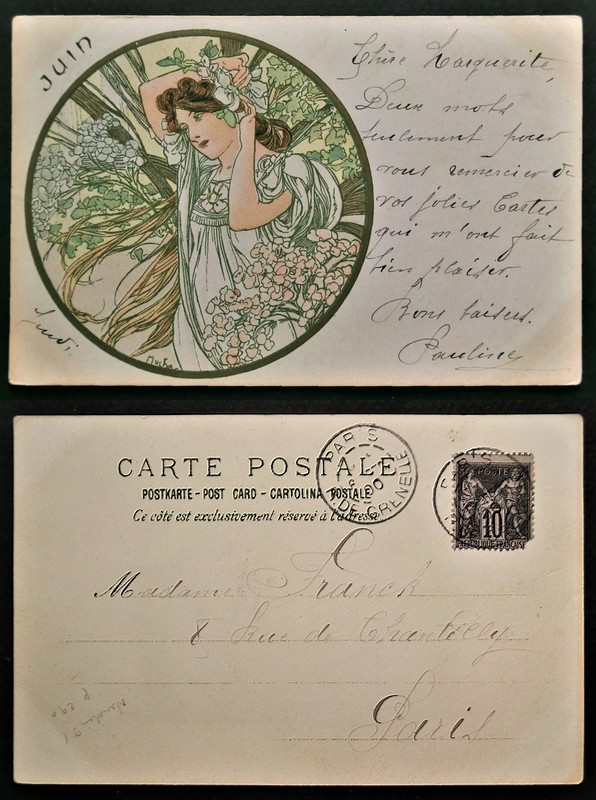 JUIN
Chère Marguerite,
Deux mots
seulement pour
vous remercier de
vos jolies Cartes
qui m'ont fait
bien plaisir.
Bons baisers.
Pauline
Jeudi.
Mucha
CARTE POSTALE
POSTKARTE - POST CARD - CARTOLINA POSTALE
Ce côté est exclusivement réservé à l'adresse
PARIS
00
R. DE GRENELLE
PARIS
POSTE
10
REPUBLIQUE FRANÇAISE
Madame Franck
8 Rue de Chantilly
Paris